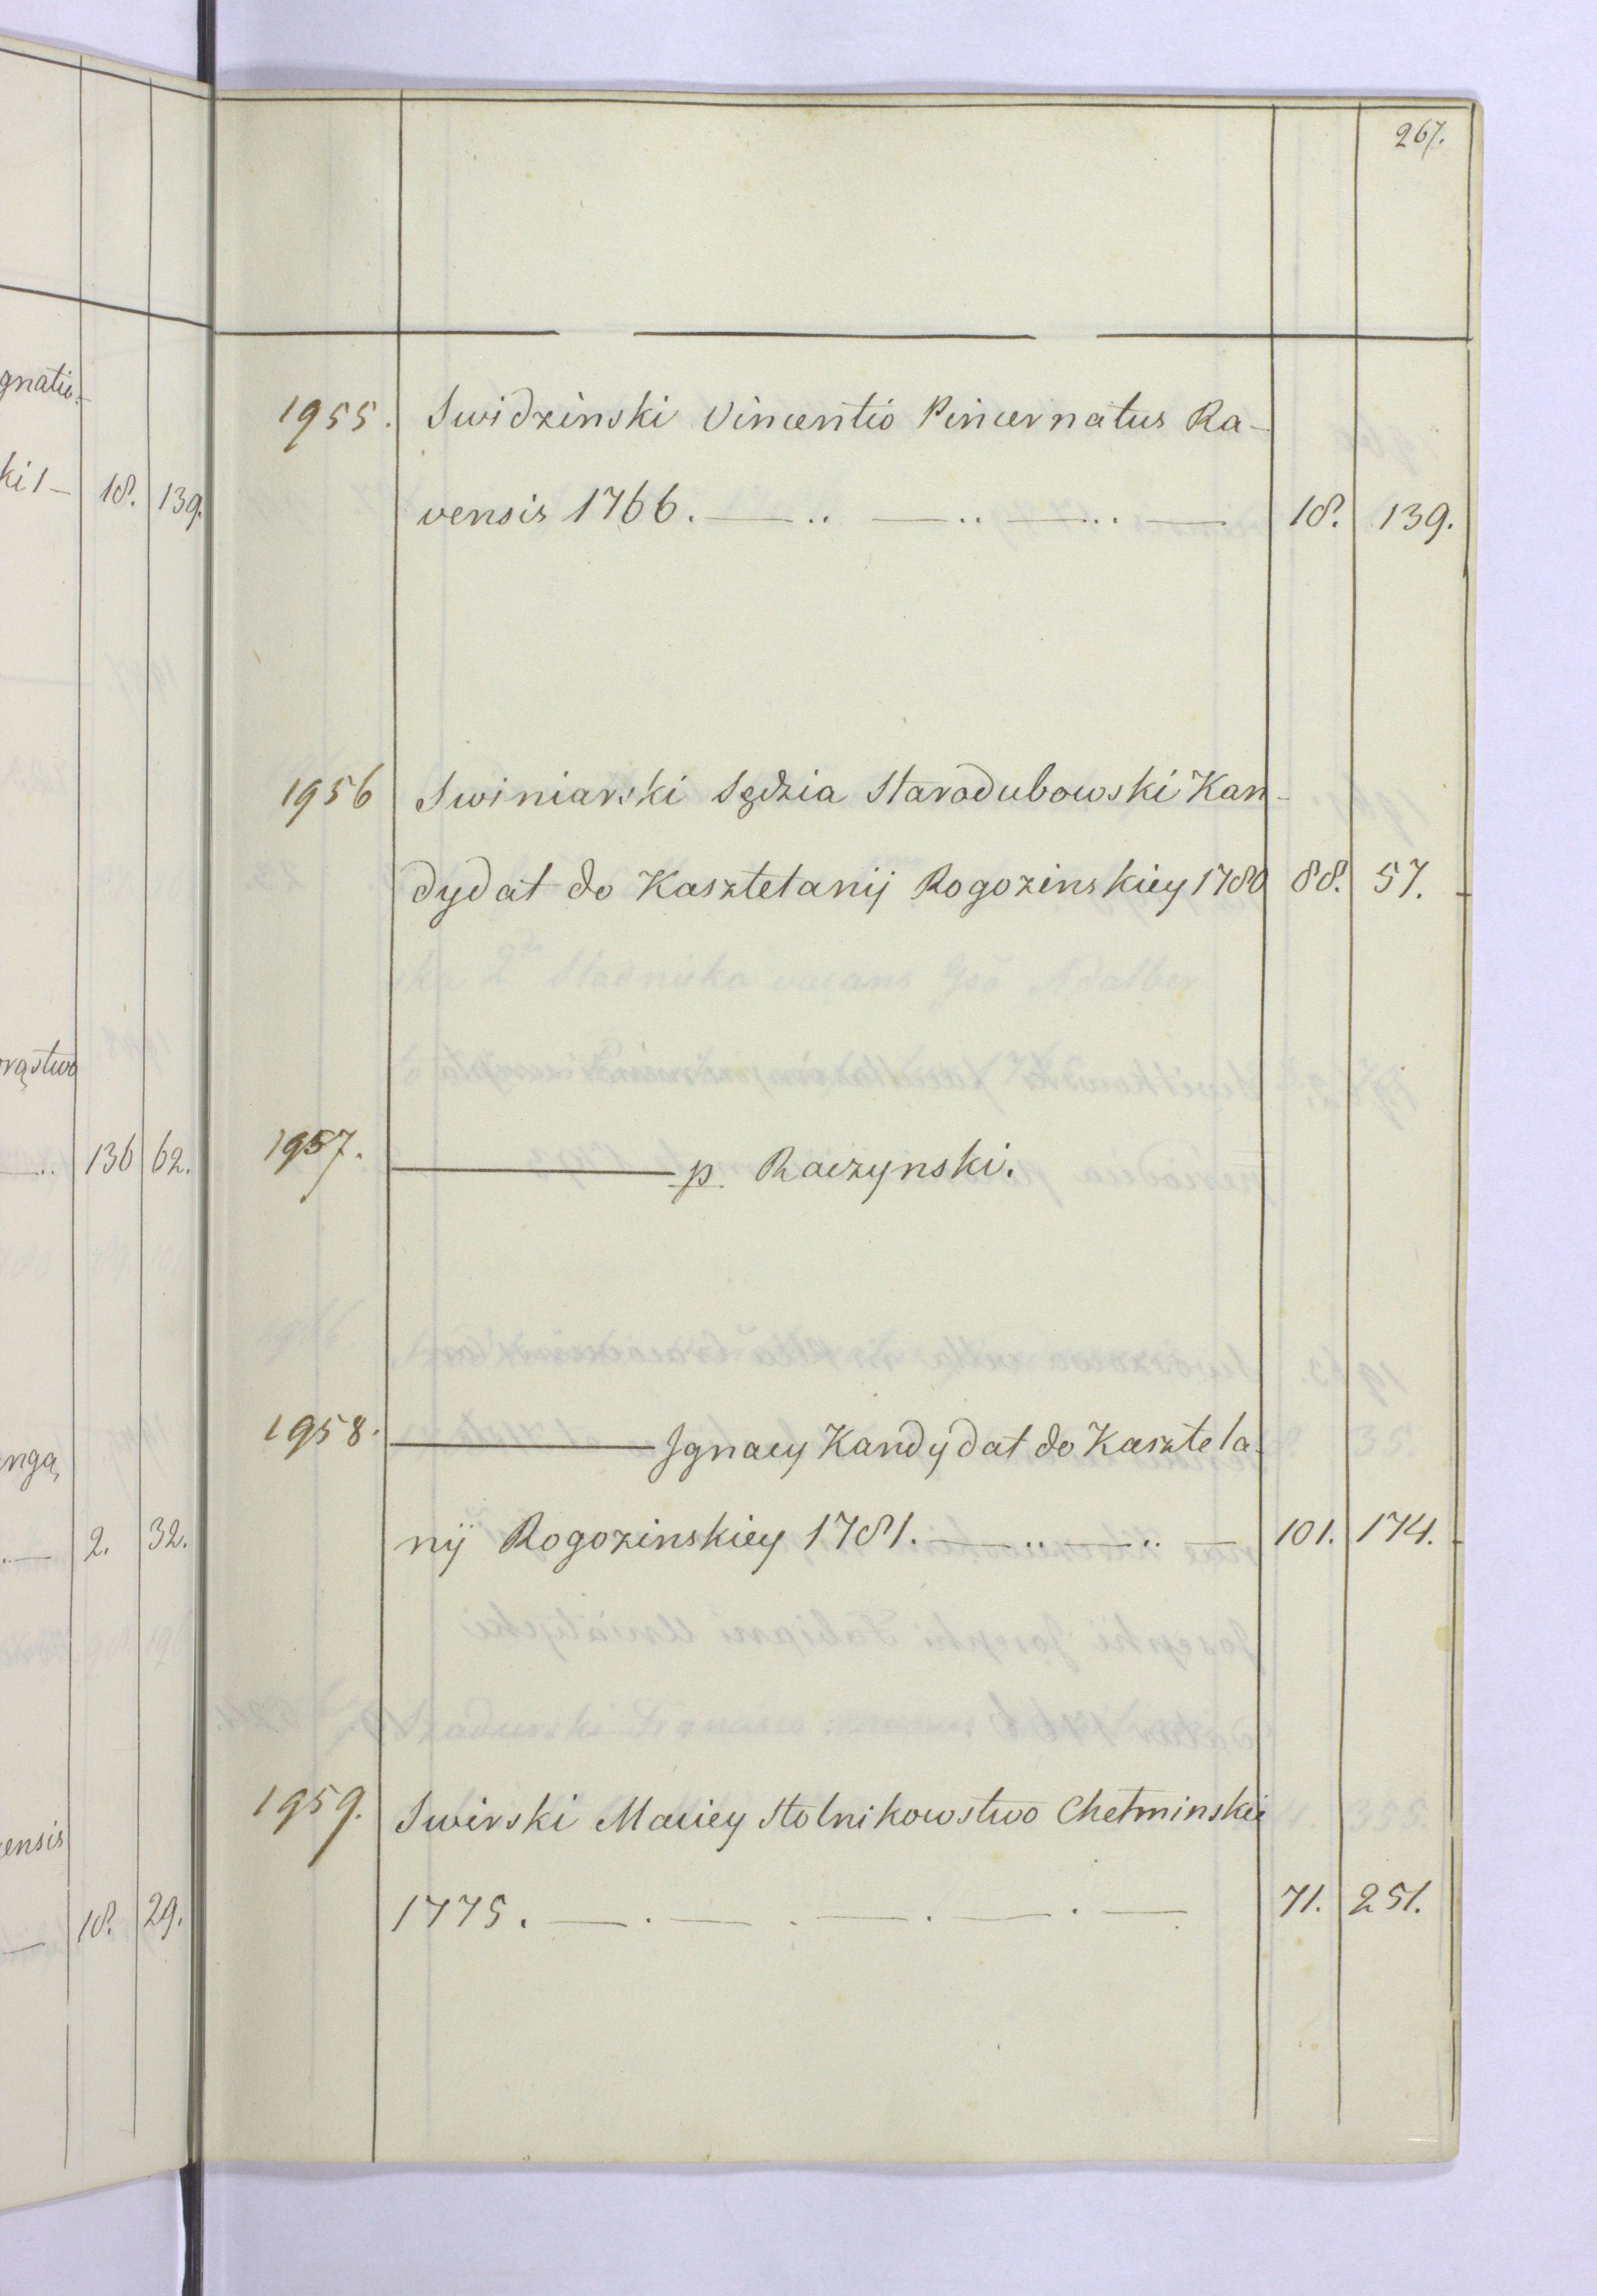 267.
1955. Swidzinski Vincentio Pincernatus Ra-
vensis 1766. —.. —.. —... — 18. 139.
1956 Swiniarski Sędzia Starodubowski Kan-
dydat do Kasztelanij Rogozinskiey 1780 88. 57.
1957. ——— p. Raczynski.
1958. ——— Jgnacy Kandydat do Kasztela-
nij Rogozinskiey 1781. —.. —.. — 101. 174.
1959. Swirski Maciey Stolnikowstwo Chełminskie
1775. —. — . —. —. — 71. 251.
gnatio-
ki 1 — 18. 139.
rąstwo
—.. 136 62.
ngą
..— 2. 32.
ensis
— 18. 29.